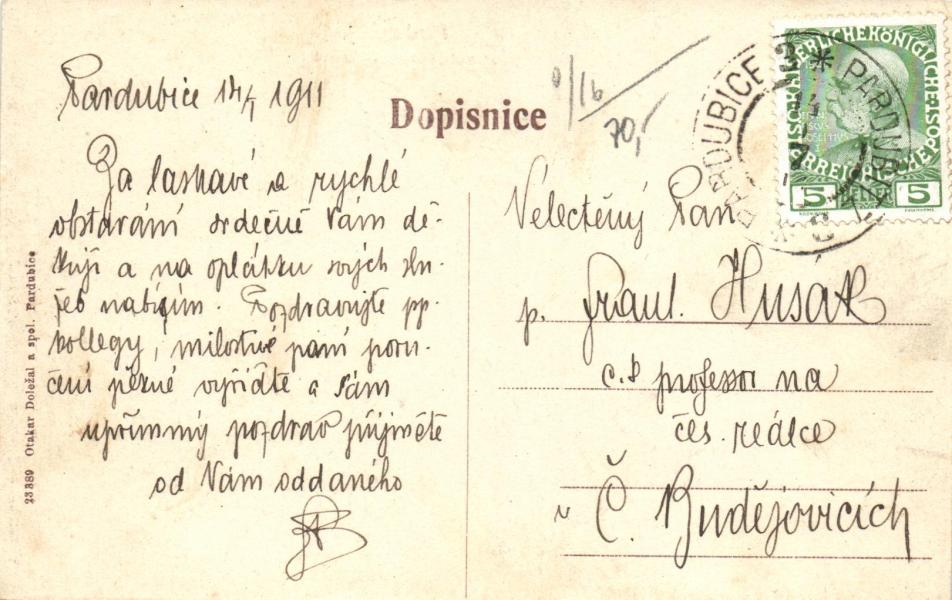 Pardubice 14/I 1911
Za laskavé a rychlé
obstarání srdečně Vám dě-
kuji a na oplátku svých slu-
žeb nabízím. Pozdravujte pp.
kollegy, milostivé paní poru-
čení pěkné vyřiďte a sám
upřímný pozdrav přijměte
od Vám oddaného
Dopisnice
0/16
70,-
PARDUBICE 3 * PARDUBITZ
5 5
Velectěný Pan
p. Frant. Husák
c.k professor na
čes. reálce
v Č. Budějovicích
23389 Otakar Doležal a spol. Pardubice